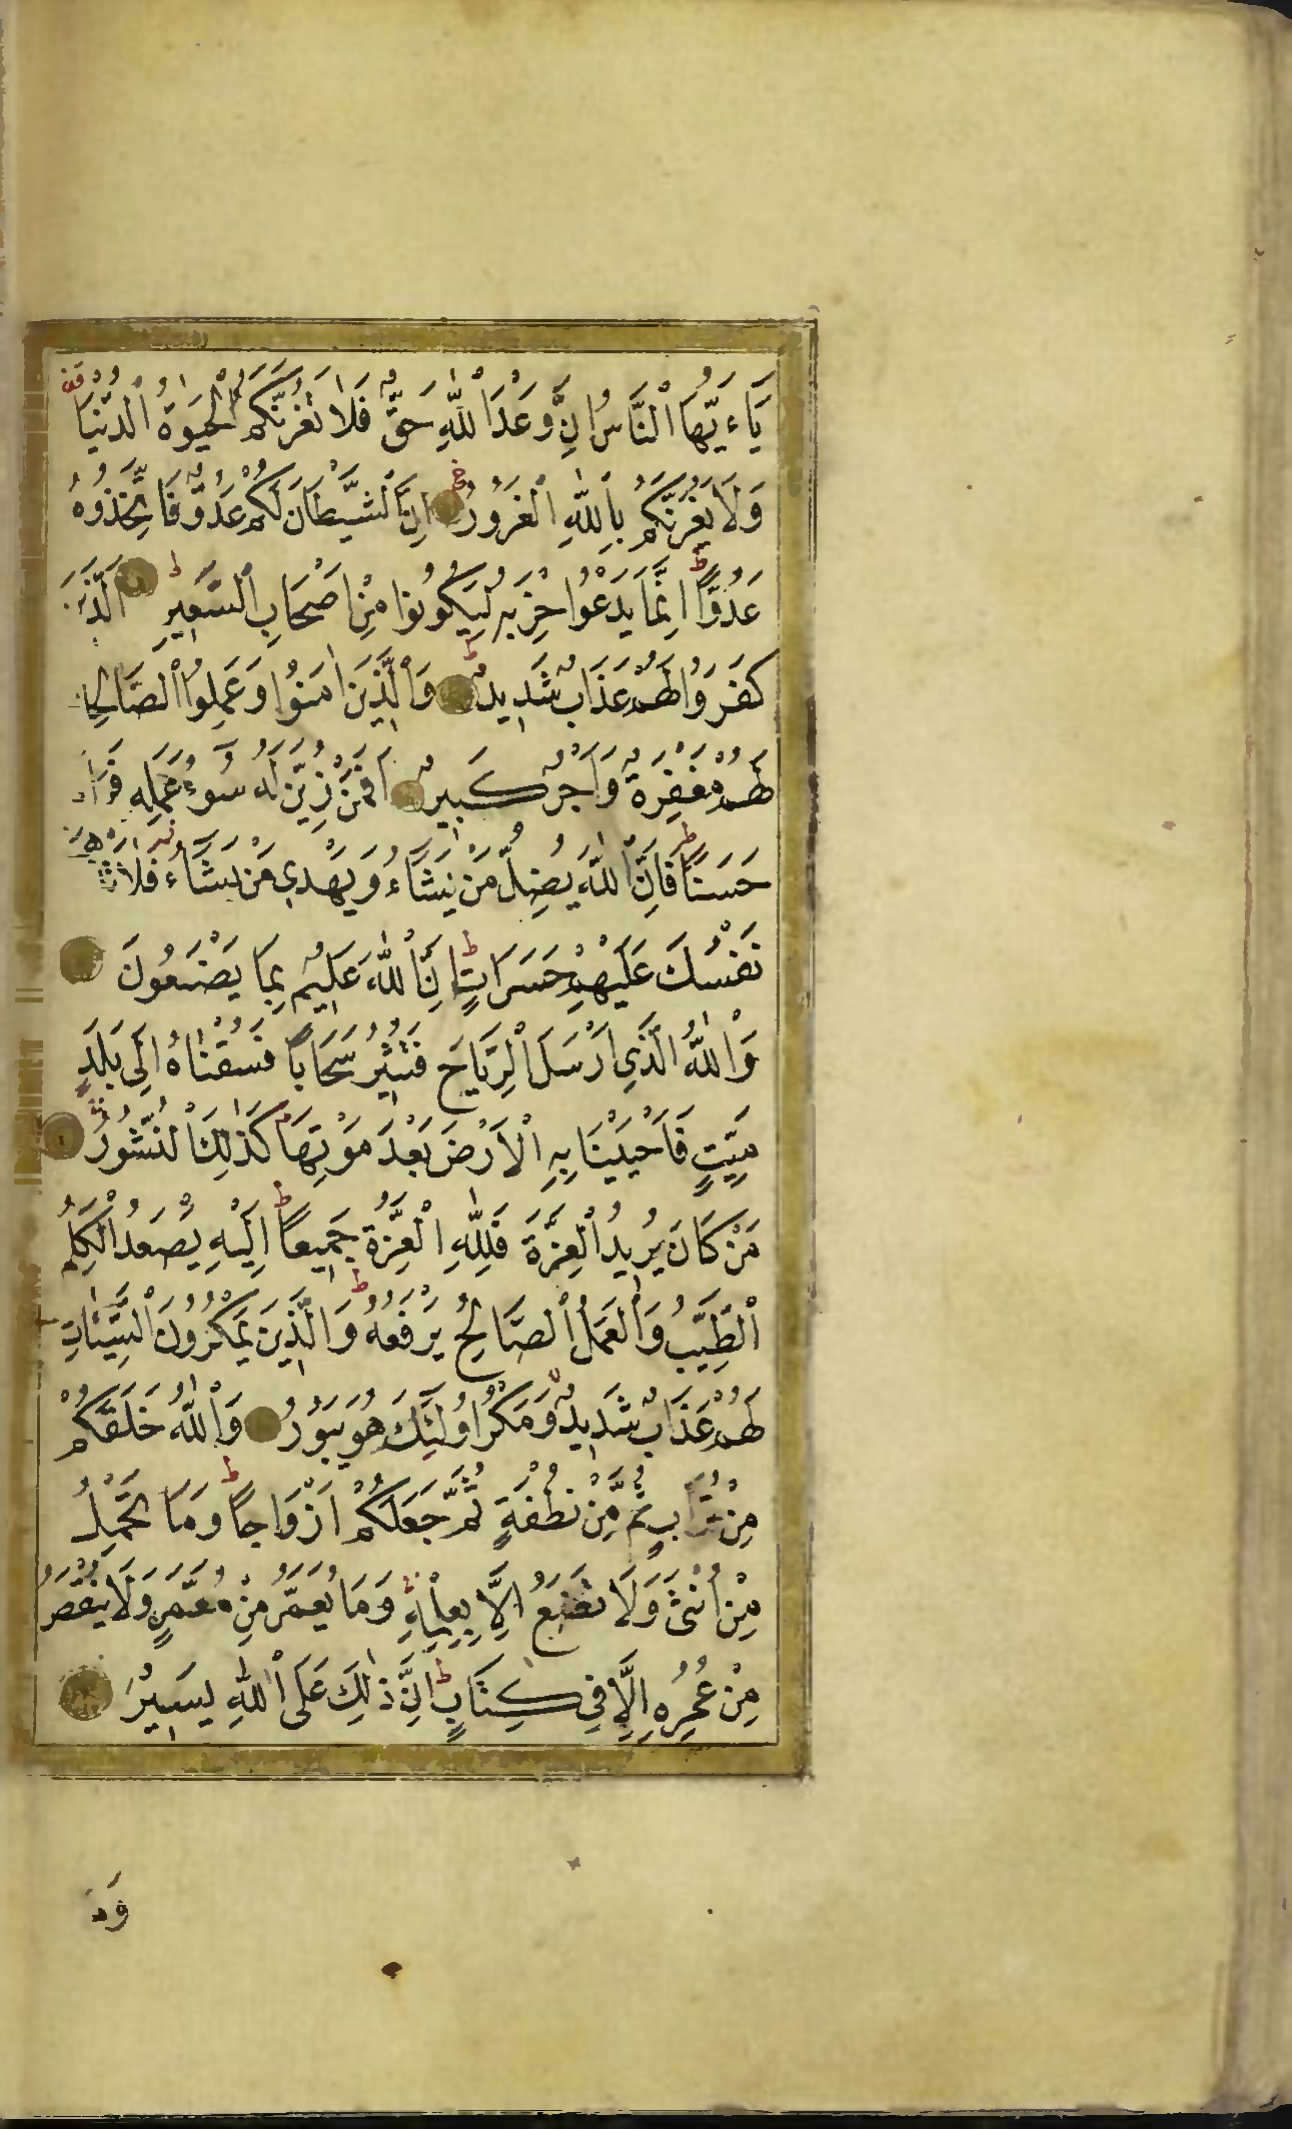 يَاءَيُّهَا ٱلنَّاسُ اِنَّ وَعْدَ ٱللّٰهِ حَقٌّ فَلَا تَغُرَّنَّكُمُ ٱلْحَيٰوةُ ٱلدُّنْيَا
وَلَا يَغُرَّنَّكُمْ بِٱللّٰهِ ٱلْغَرُورُ اِنَّ ٱلشَّيْطَانَ لَكُمْ عَدُوٌّ فَاتَّخِذُوهُ
عَدُوًّا اِنَّمَا يَدْعُوا حِزْبَهُ لِيَكُونُوا مِنْ اَصْحَابِ ٱلسَّعِيرِ اَلَّذِينَ
كَفَرُوا لَهُمْ عَذَابٌ شَدِيدٌ وَٱلَّذِينَ اٰمَنُوا وَعَمِلُوا ٱلصَّالِحَا
لَهُمْ مَغْفِرَةٌ وَاَجْرٌ كَبِيرٌ اَفَمَنْ زُيِّنَ لَهُ سُوءُ عَمَلِهِ فَرَاٰ
حَسَنًا فَاِنَّ ٱللّٰهَ يُضِلُّ مَنْ يَشَاءُ وَيَهْدِي مَنْ يَشَاءُ فَلَا
نَفْسُكَ عَلَيْهِمْ حَسَرَاتٍ اِنَّ ٱللّٰهَ عَلِيمٌ بِمَا يَصْنَعُونَ
وَٱللّٰهُ ٱلَّذِي اَرْسَلَ ٱلرِّيَاحَ فَتُثِيرُ سَحَابًا فَسُقْنَاهُ اِلَى بَلَدٍ
مَيِّتٍ فَاَحْيَيْنَا بِهِ ٱلْاَرْضَ بَعْدَ مَوْتِهَا كَذٰلِكَ ٱلنُّشُورُ
مَنْ كَانَ يُرِيدُ ٱلْعِزَّةَ فَلِلّٰهِ ٱلْعِزَّةُ جَمِيعًا اِلَيْهِ يَصْعَدُ ٱلْكَلِمُ
ٱلطَّيِّبُ وَٱلْعَمَلُ ٱلصَّالِحُ يَرْفَعُهُ وَالَّذِينَ يَمْكُرُونَ ٱلسَّيِّئَاتِ
لَهُمْ عَذَابٌ شَدِيدٌ وَمَكْرُ اُولٰئِكَ هُوَ يَبُورُ وَٱللّٰهُ خَلَقَكُمْ
مِنْ تُرَابٍ ثُمَّ مِنْ نُطْفَةٍ ثُمَّ جَعَلَكُمْ اَزْوَاجًا وَمَا تَحْمِلُ
مِنْ اُنْثَى وَلَا تَضَعُ اِلَّا بِعِلْمِهِ وَمَا يُعَمَّرُ مِنْ مُعَمَّرٍ وَلَا يُنْقَصُ
مِنْ عُمُرِهِ اِلَّا فِي كِتَابٍ اِنَّ ذٰلِكَ عَلَى ٱللّٰهِ يَسِيرٌ